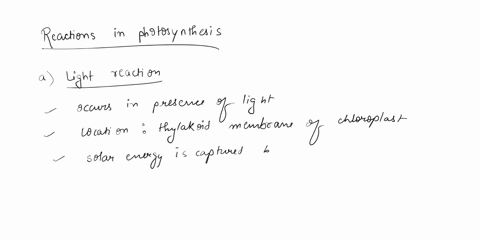 Reactions in photosynthesis
a) Light reaction
✓ occurs in presence of light
✓ Location : thylakoid membrane of chloroplast
✓ solar energy is captured